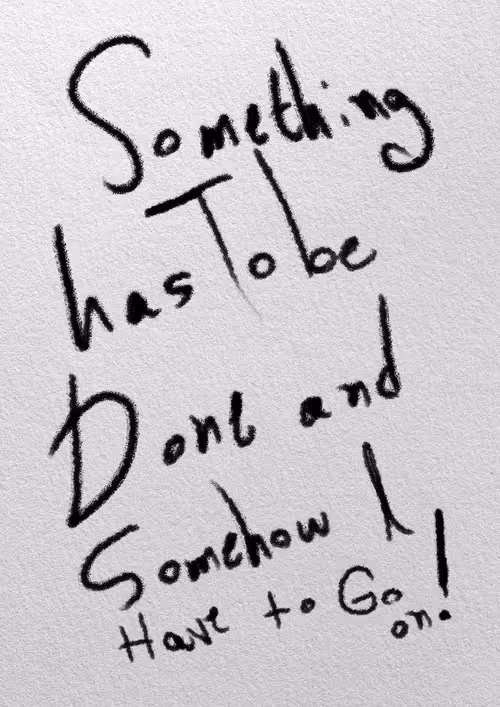 Something
has To be
Done and
Somehow I
Have to Go
on!